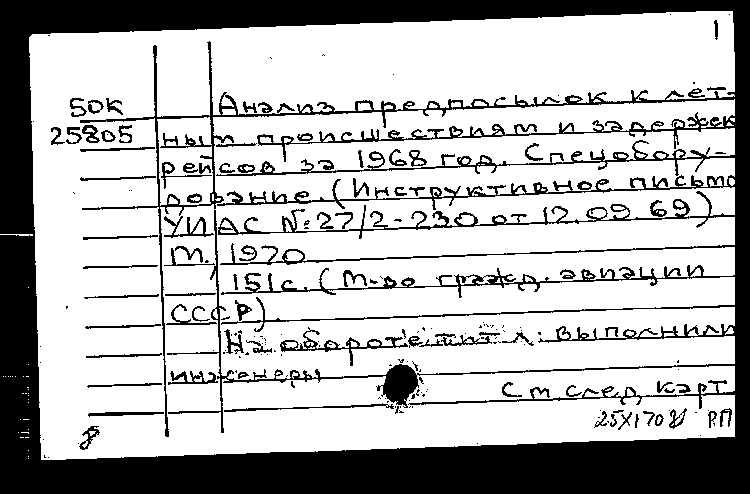 1
50К Анализ предпосылок к лёт-
25805 ным происшествиям и задержек
рейсов за 1968 год. Спецобору-
дование. (Инструктивное письмо
УИАС №27/2-230 от 12.09.69).
М., 1970
151с. (М-во гражд. авиации
СССР).
На обороте тит. л.: выполнили
инженеры
См след. карт
25X170 РП
8